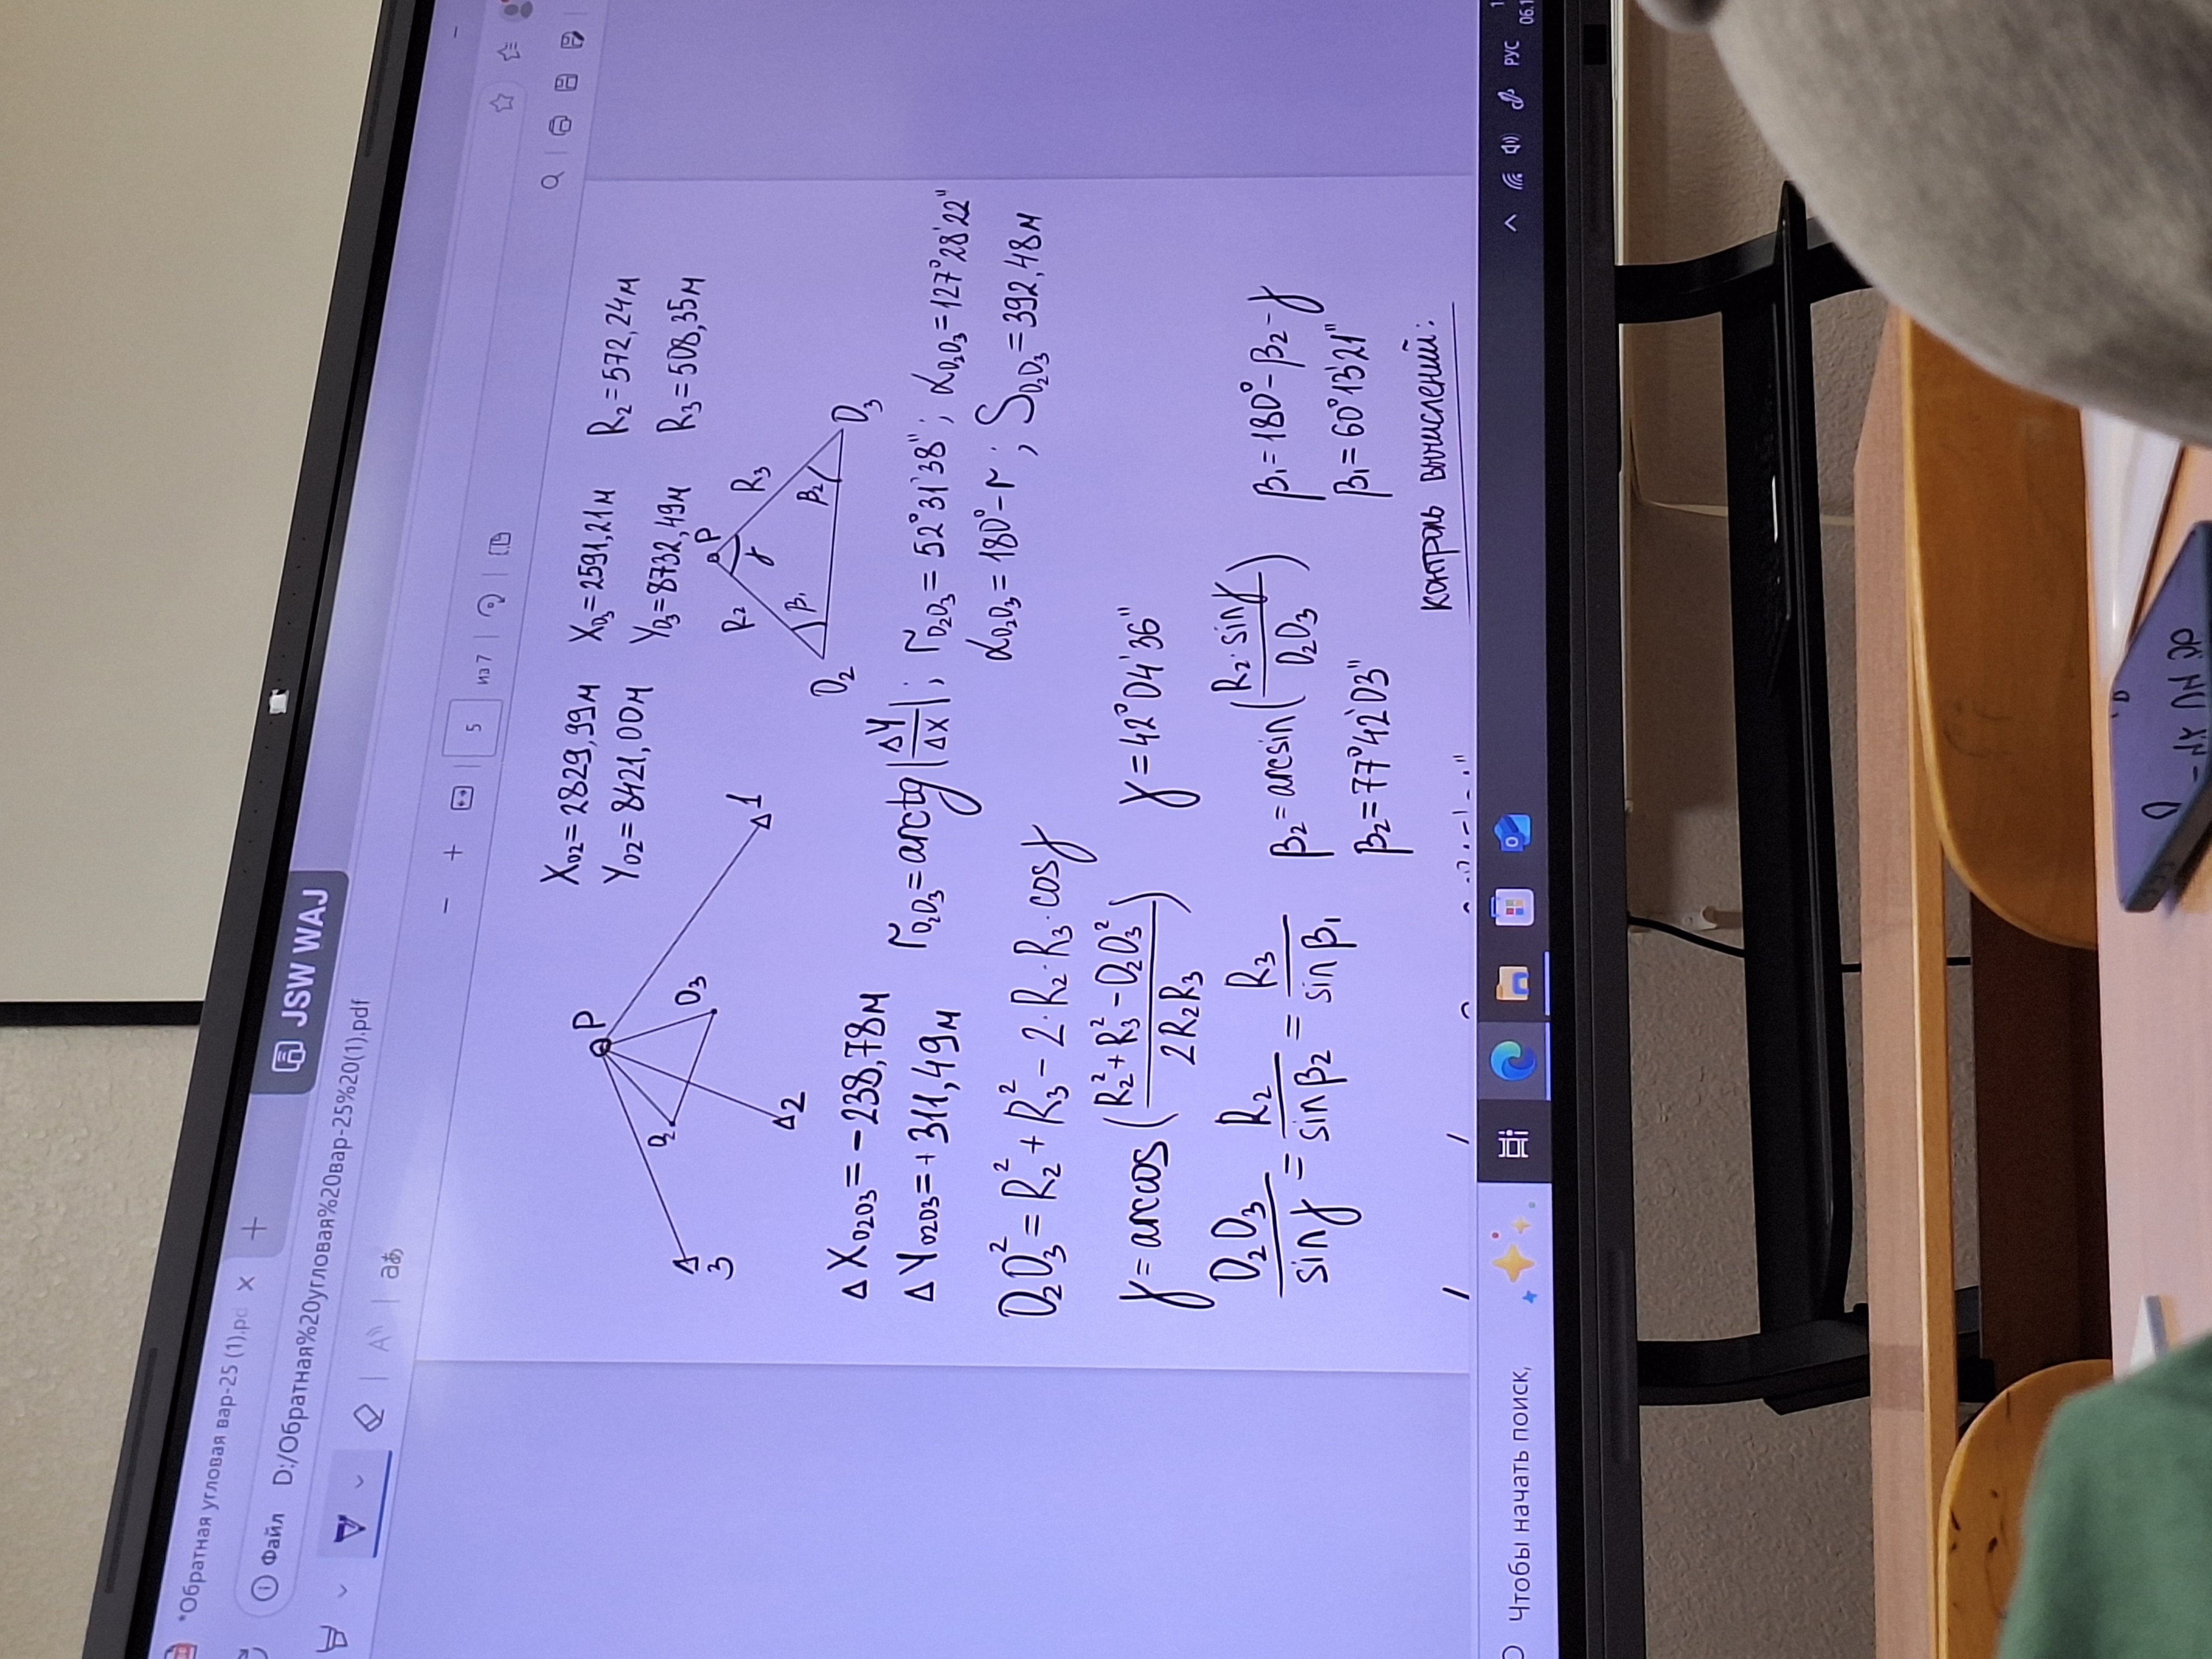 *Обратная угловая вар-25 (1).pd
JSW WAJ
Файл D:/Обратная%20угловая%20вар-25%20(1).pdf
5 из 7
X₀₂=2829,99м X₀₃=2591,21м R₂=572,24м
Y₀₂=8421,00м Y₀₃=8732,49м R₃=508,35м
P
Δ1
Δ2
Δ3
O₂
O₃
P
R₂ R₃
γ
β₁ β₂
O₂ O₃
ΔX₀₂₀₃=-238,78м
ΔY₀₂₀₃=+311,49м
r₀₂₀₃=arctg|ΔY/ΔX|; r₀₂₀₃=52°31'38"; α₀₂₀₃=127°28'22"
α₀₂₀₃=180°-r; S₀₂₀₃=392,48м
O₂O₃²=R₂²+R₃²-2·R₂·R₃·cosγ
γ=arccos((R₂²+R₃²-O₂O₃²)/2R₂R₃) γ=42°04'36"
O₂O₃/sinγ=R₂/sinβ₂=R₃/sinβ₁
β₂=arcsin(R₂·sinγ/O₂O₃) β₁=180°-β₂-γ
β₂=77°42'03" β₁=60°13'21"
контроль вычислений:
Чтобы начать поиск,
РУС
06.1